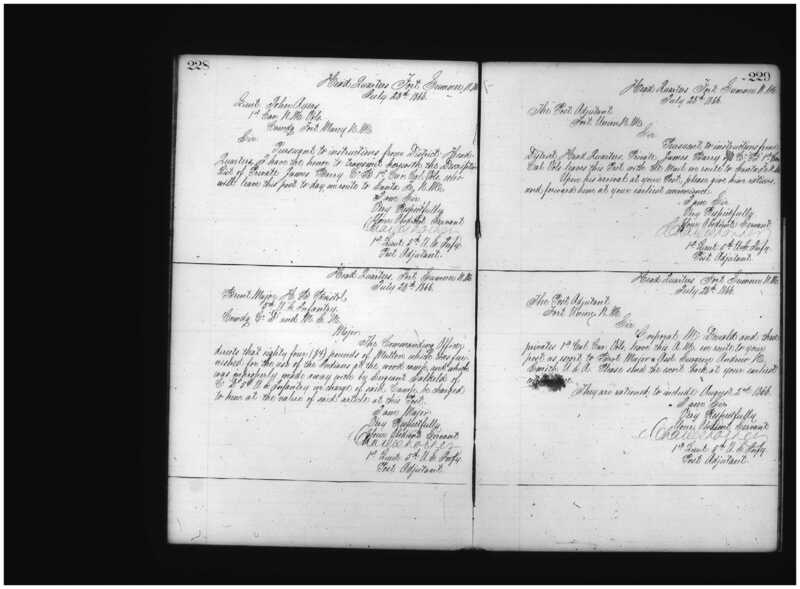 228
Head Quarters Fort Sumner N.M.
July 28th 1866.
Lieut. John Ayers
1st Cav. N.M. Vols.
Comdg Fort Marcy N.M.
Sir
Pursuant to instructions from District Head
Quarters, I have the honor to transmit herewith the Descriptive
List of Private James Berry Co. 1st Cav. Cal. Vols. who
will leave this post to day en route to Santa Fe, N.M.
I am Sir
Very Respectfully
Your Obedient Servant
1st Lieut 5th U.S. Infy
Post Adjutant.
Head Quarters, Fort Sumner N.M.
July 28th 1866.
Brevet Major H. B. Bristol,
5th U.S. Infantry.
Comdg Co. and
Major
The Commanding Officer
directs that eighty four (84) pounds of Mutton which was fur-
nished for the use of the Indians at the wood camp, and which
was improperly made away with by Sergeant of
Co. 5th U.S. Infantry in charge of said Camp, be charged
to him at the value of said article at this Post.
I am Major
Very Respectfully
Your Obedient Servant
1st Lieut 5th U.S. Infy
Post Adjutant.
229
Head Quarters Fort Sumner N.M.
July 28th 1866.
The Post Adjutant
Fort Union N.M.
Sir
Pursuant to instructions from
District Head Quarters, Private James Berry Co. 1st Cav.
Cal. Vols leaves this Post with the Mail en route to Santa Fe N.M.
Upon his arrival at your Post, please give him rations,
and forward him at your earliest convenience.
I am Sir
Very Respectfully
Your Obedient Servant
1st Lieut 5th U.S. Infy
Post Adjutant.
Head Quarters Fort Sumner N.M.
July 28th 1866.
The Post Adjutant
Fort Union N.M.
Sir
Corporal Mc Donald and three
privates 1st Cal. Cav. Vols, leave this A.M. en route to your
post as escort to Brevt Major & Asst. Surgeon Andrew
U.S.A. Please send the escort back at your earliest
They are rationed to include August 2nd 1866.
I am Sir
Very Respectfully
Your Obedient Servant
1st Lieut 5th U.S. Infy
Post Adjutant.